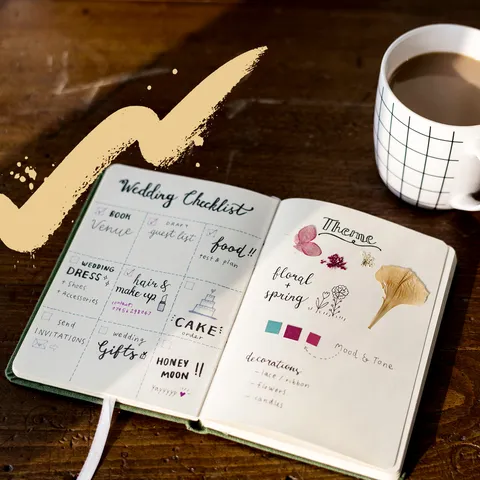 Wedding Checklist
BOOK
Venue
DRAFT
guest list
food!!
test & plan
WEDDING
DRESS +
+ Shoes
+ Accessories
hair &
make up
contact:
CAKE
order
send
INVITATIONS
wedding
Gifts
HONEY
MOON !!
Yayyyyy
Theme
floral +
spring
Mood & Tone
decorations
- lace / ribbon
- flowers
- candles